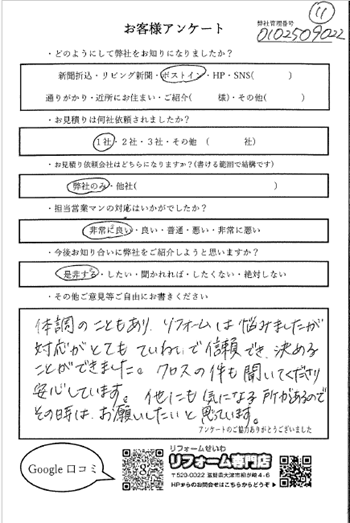 ⑪
お客様アンケート
弊社管理番号
0102509022
・どのようにして弊社をお知りになりましたか？
新聞折込・リビング新聞・ポストイン・HP・SNS(　　　)
通りがかり・近所にお住まい・ご紹介(　　　様)・その他(　　　)
・お見積りは何社依頼されましたか？
1社・2社・3社・その他　(　　　社)
・お見積り依頼会社はどちらになりますか？(書ける範囲で結構です)
弊社のみ・他社(　　　)
・担当営業マンの対応はいかがでしたか？
非常に良い・良い・普通・悪い・非常に悪い
・今後お知り合いに弊社をご紹介しようと思いますか？
是非する・したい・聞かれれば・したくない・絶対しない
・その他ご意見等ご自由にお書きください
体調のこともあり、リフォームは悩みましたが
対応がとてもていねいで信頼でき、決める
ことができました。クロスの件も聞いてくださり
安心しています。他にも気になる所があるので
その時は、お願いしたいと思っています。
アンケートのご協力ありがとうございました
Google 口コミ
リフォームせいわ
リフォーム専門店
〒520-0022 滋賀県大津市柳が崎4-6
HPからのお問合せはこちらからどうぞ▶